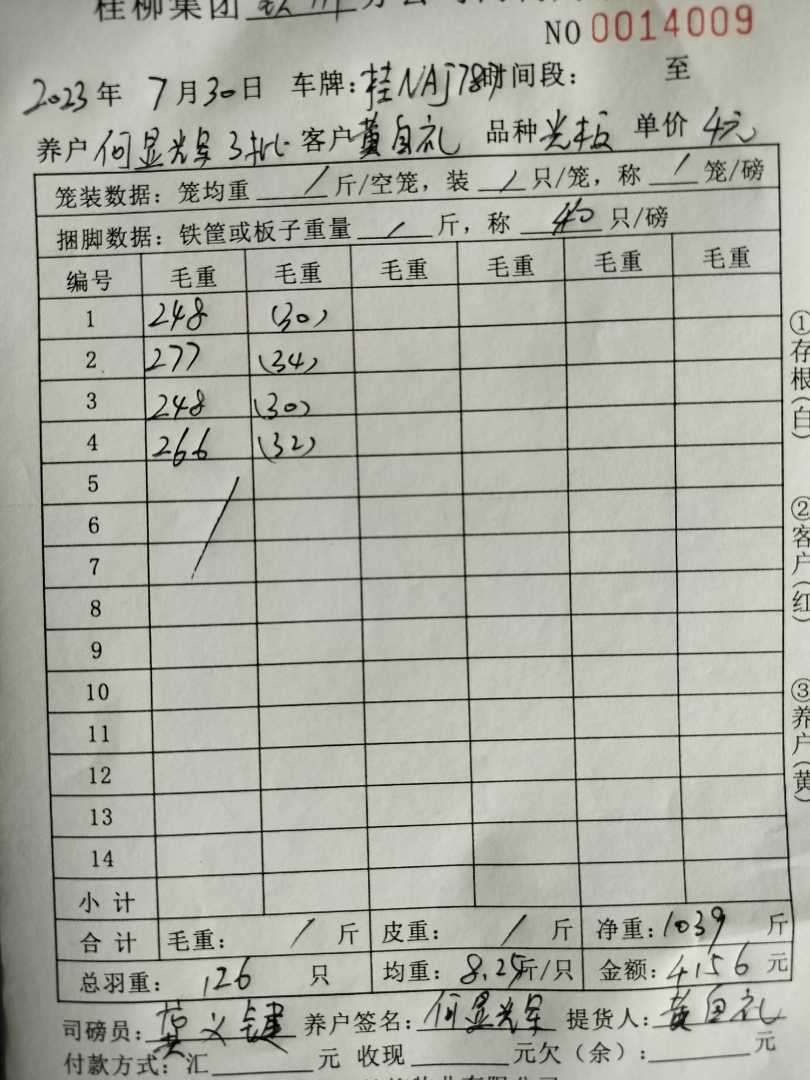 桂柳集团
NO 0014009
2023年 7月30日 车牌:桂NAJ787 时间段: 至
养户 何显光军 3批 客户 黄自礼 品种 光板 单价 4元
笼装数据: 笼均重 / 斤/空笼, 装 / 只/笼, 称 / 笼/磅
捆脚数据: 铁筐或板子重量 / 斤, 称 40 只/磅
编号 毛重 毛重 毛重 毛重 毛重 毛重
1 248 (30)
2 277 (34)
3 248 (30)
4 266 (32)
5
6
7
8
9
10
11
12
13
14
小计
合计 毛重: / 斤 皮重: / 斤 净重:1039 斤
总羽重: 126 只 均重: 8.25斤/只 金额:4156 元
司磅员: 养户签名: 何显光军 提货人: 黄自礼
付款方式: 汇 元 收现 元欠(余): 元
①存根(白)
②客户(红)
③养户(黄)